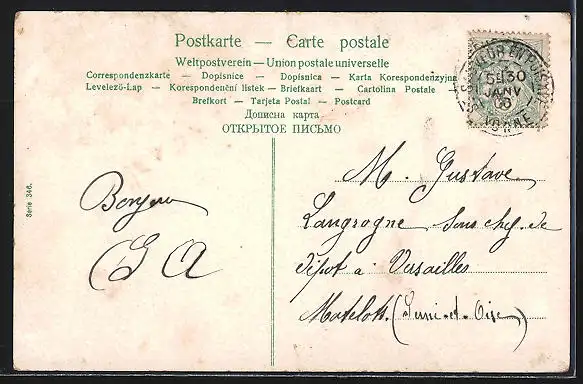 Postkarte — Carte postale
Weltpostverein — Union postale universelle
Correspondenzkarte — Dopisnice — Dopisnica — Karta Korespondenzyjna
Levelező-Lap — Korespondenční listek — Briefkaart — Cartolina Postale
Brefkort — Tarjeta Postal — Postcard
Дописна карта
ОТКРЫТОЕ ПИСЬМО
5E 30
JANV
06
YONNE
Serie 346.
Bonjour
G A
M. Gustave
Langrogne sous chef de
dépot a Versailles
Matelots (Seine-et-Oise)